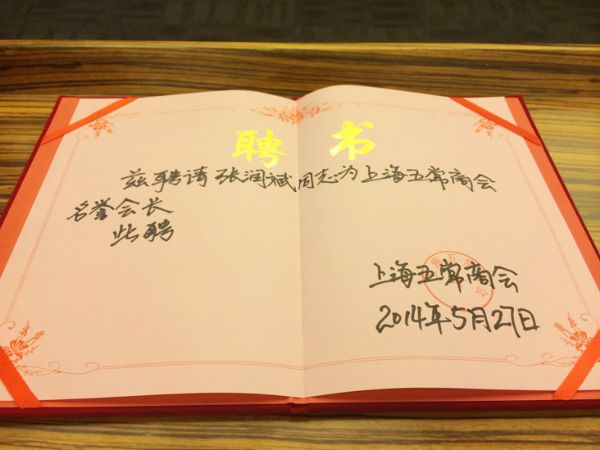 聘书
兹聘请张润斌同志为上海五常商会
名誉会长
此聘
上海五常商会
2014年5月27日